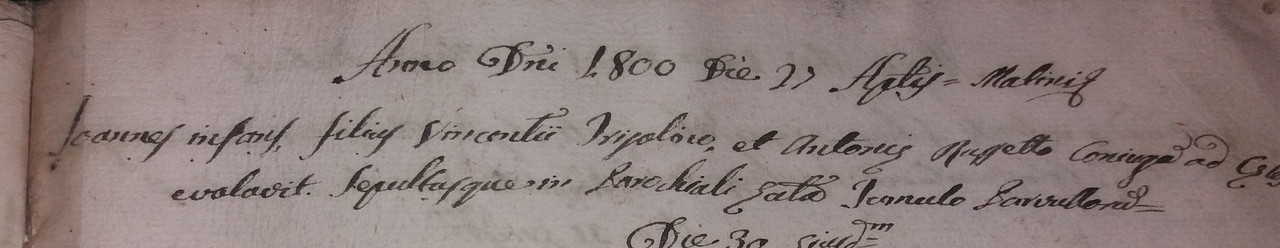 Anno Dñi 1800 Die 27 Aplis = Malinis
Joannes infans, filius Vincentii et Antonię Rugetto Coniugũ ad
evolavit. Sepultusque in Parochiali Tumulo Parvulloru =
Die 30 eiusdm